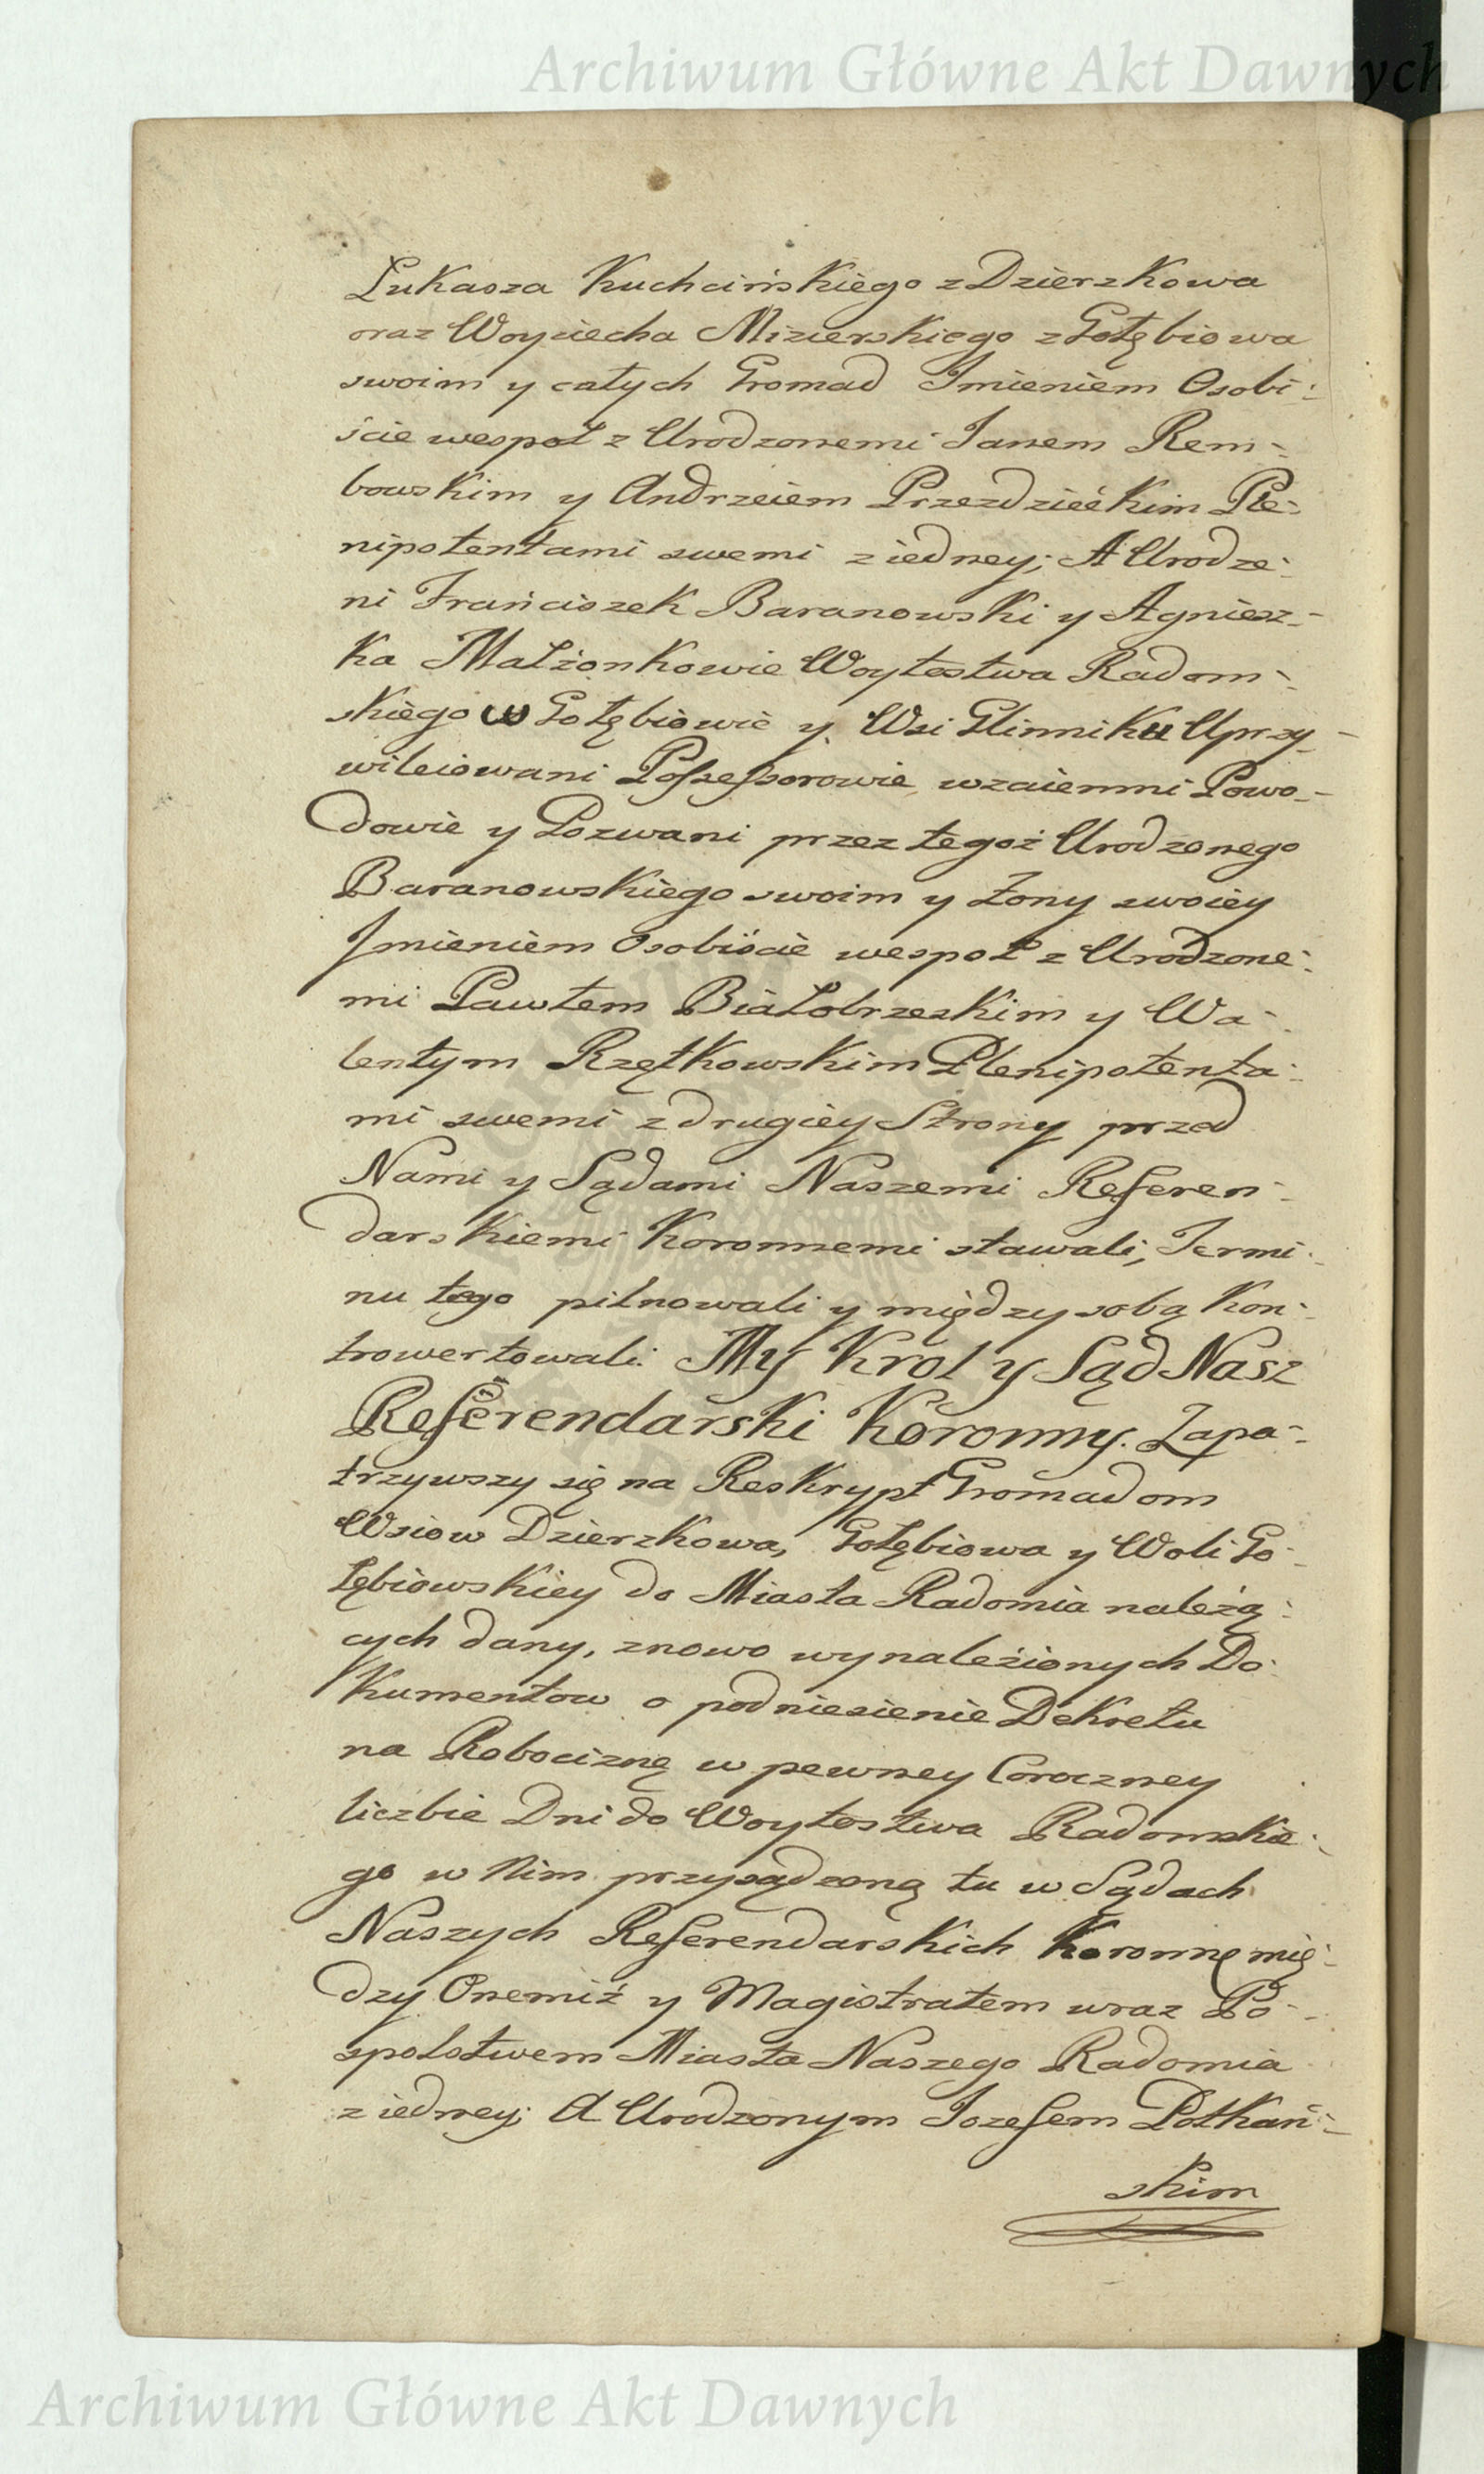 Archiwum Główne Akt Dawnych
Łukasza Kuchcińskiego z Dzierzkowa
oraz Woyciecha Mizierskiego z Gołębiowa
swoim y całych Gromad Imieniem Osobi-
ście wespoł z Urodzonemi Ianem Rem-
bowskim y Andrzeiem Przezdzieckim Ple-
nipotentami swemi z iedney; A Urodze-
ni Franciszek Baranowski y Agniesz-
ka Małżonkowie Woytostwa Radom-
skiego w Gołębiowie y Wsi Glinniku Uprzy-
wileiowani Possessorowie wzaiemni Powo-
dowie y Pozwani przez tegoż Urodzonego
Baranowskiego swoim y Żony swoiey
Imieniem Osobiście wespoł z Urodzone-
mi Pawłem Białobrzeskim y Wa-
lentym Rzętkowskim Plenipotenta-
mi swemi z drugiey Strony przed
Nami y Sądami Naszemi Referen-
darskiemi Koronnemi stawali, Termi-
nu tego pilnowali y między sobą Kon-
trowertowali. My Krol y Sąd Nasz
Referendarski Koronny. Zapa-
trzywszy się na Reskrypt Gromadom
Wsiow Dzierzkowa, Gołębiowa y Woli Go-
łębiowskiey do Miasta Radomia należą-
cych dany, znowo wynaleźionych Do-
kumentow o podniesienie Dekretu
na Robociznę w pewney Coroczney
liczbie Dni do Woytostwa Radomskie-
go w Nim przysądzoną tu w Sądach
Naszych Referendarskich Koronnę mię-
dzy Onemiż y Magistratem wraz Po-
spolstwem Miasta Naszego Radomia
z iedney; A Urodzonym Iozefem Potkań-
skim
Archiwum Główne Akt Dawnych